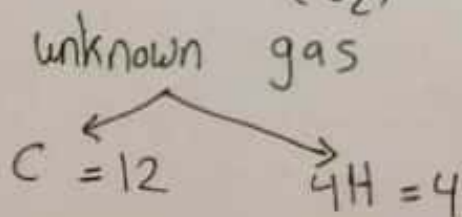 unknown gas
C = 12 4H = 4